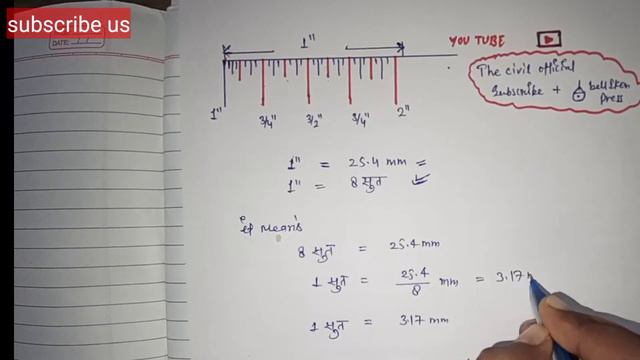 subscribe us
DATE:
1"
YOU TUBE
The civil official
subscribe + bell Icon
press
1" 3/4" 3/2" 3/4" 2"
1" = 25.4 mm =
1" = 8 सुत
If Means
8 सुत = 25.4 mm
1 सुत = 25.4/8 mm = 3.17
1 सुत = 3.17 mm